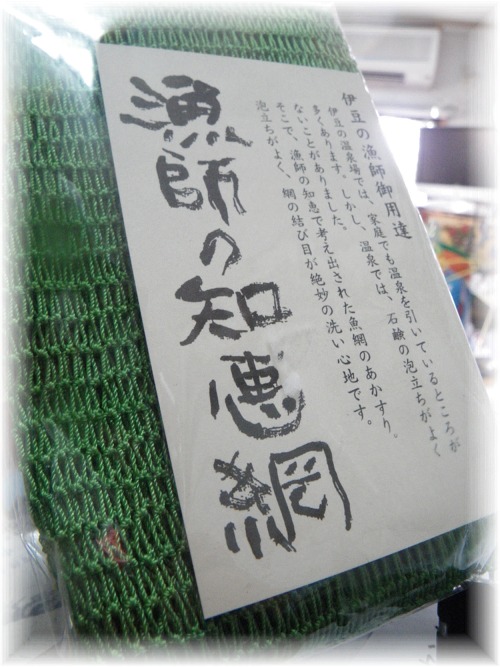 伊豆の漁師御用達
伊豆の温泉場では、家庭でも温泉を引いているところが
多くあります。しかし、温泉では、石鹸の泡立ちがよく
ないことがありました。
そこで、漁師の知恵で考え出された魚網のあかすり。
泡立ちがよく、網の結び目が絶妙の洗い心地です。
漁師の知恵網